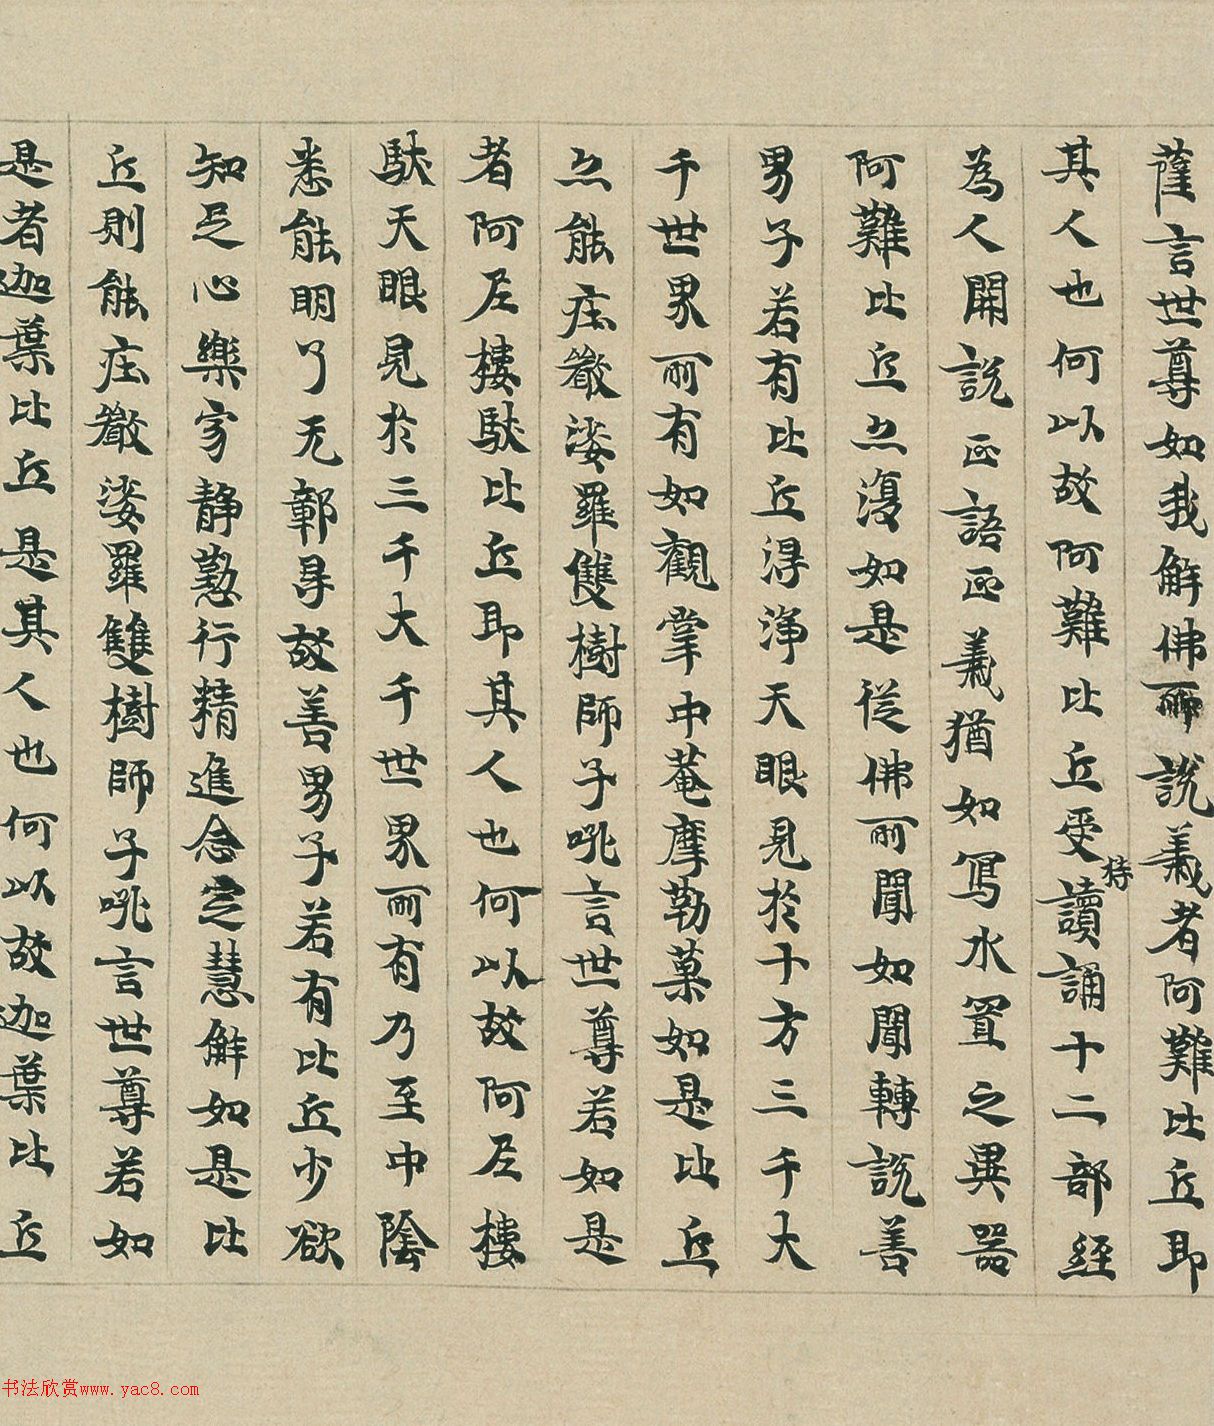 薩言世尊如我解佛所說義者阿難比丘即
其人也何以故阿難比丘受持讀誦十二部經
為人開說正語正義猶如寫水置之異器
阿難比丘亦復如是從佛所聞如聞轉說善
男子若有比丘得淨天眼見於十方三千大
千世界所有如觀掌中菴摩勒菓如是比丘
亦能庄嚴娑羅雙樹師子吼言世尊若如是
者阿尼樓馱比丘即其人也何以故阿尼樓
馱天眼見於三千大千世界所有乃至中陰
悉能明了无鄣㝵故善男子若有比丘少欲
知足心樂寂静懃行精進念定慧解如是比
丘則能庄嚴娑羅雙樹師子吼言世尊若如
是者迦葉比丘是其人也何以故迦葉比丘
书法欣赏www.yac8.com